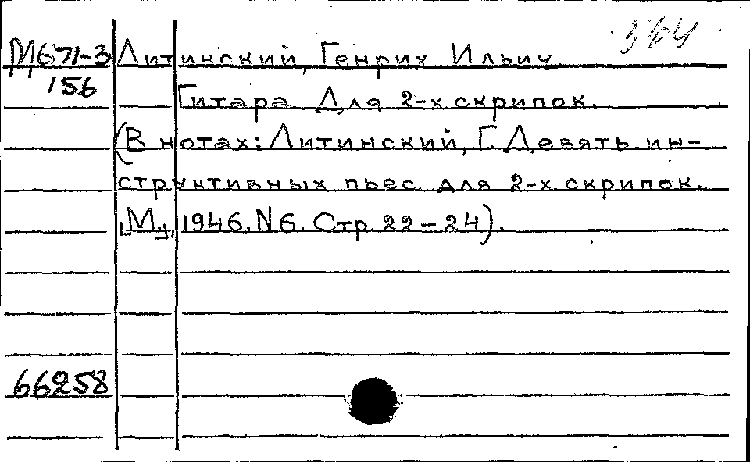 364
М671-3 Литинский, Генрих Ильич
156 Гитара. Для 2-х скрипок.
(В нотах: Литинский, Г. Девять ин-
структивных пьес для 2-х скрипок.
М., 1946. N6. Стр. 22-24).
66258